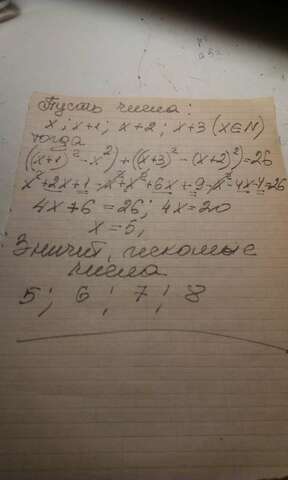 Пусть числа:
x; x+1; x+2; x+3 (x∈N)
тогда
((x+1)² - x²) + ((x+3)² - (x+2)²) = 26
x² + 2x + 1 - x² + x² + 6x + 9 - x² - 4x - 4 = 26
4x + 6 = 26; 4x = 20
x = 5,
Значит, искомые
числа
5; 6; 7; 8